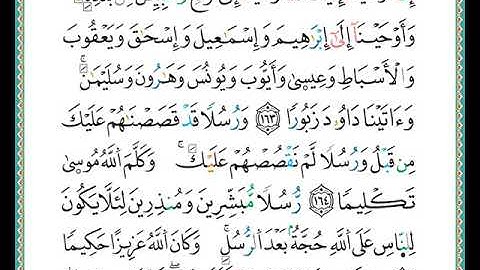 وَأَوْحَيْنَآ إِلَىٰٓ إِبْرَٰهِيمَ وَإِسْمَٰعِيلَ وَإِسْحَٰقَ وَيَعْقُوبَ
وَالْأَسْبَاطِ وَعِيسَىٰ وَأَيُّوبَ وَيُونُسَ وَهَٰرُونَ وَسُلَيْمَٰنَ ۚ
وَءَاتَيْنَا دَاوُۥدَ زَبُورًا ١٦٣ وَرُسُلًا قَدْ قَصَصْنَٰهُمْ عَلَيْكَ
مِن قَبْلُ وَرُسُلًا لَّمْ نَقْصُصْهُمْ عَلَيْكَ ۚ وَكَلَّمَ اللَّهُ مُوسَىٰ
تَكْلِيمًا ١٦٤ رُّسُلًا مُّبَشِّرِينَ وَمُنذِرِينَ لِئَلَّا يَكُونَ
لِلنَّاسِ عَلَى اللَّهِ حُجَّةٌۢ بَعْدَ الرُّسُلِ ۚ وَكَانَ اللَّهُ عَزِيزًا حَكِيمًا